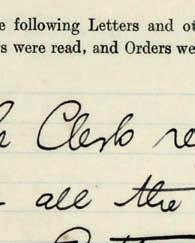 e following Letters and ot
rs were read, and Orders we
Clerk re
all the